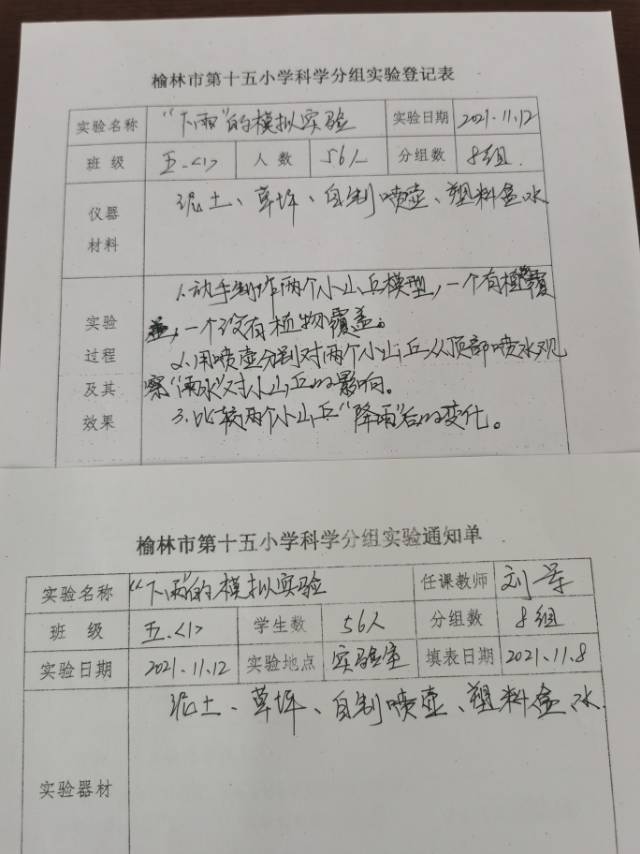 榆林市第十五小学科学分组实验登记表
实验名称 "下雨"的模拟实验 实验日期 2021.11.12
班 级 五.<1> 人 数 56人 分组数 8组.
仪器 泥土、草坪、自制喷壶、塑料盒水
材料
1.动手制作两个小山丘模型,一个有植物覆
实验 盖,一个没有植物覆盖。
过程 2.用喷壶分别对两个小山丘从顶部喷水观
及其 察"雨水"对小山丘的影响。
效果 3.比较两个小山丘"降雨"后的变化。
榆林市第十五小学科学分组实验通知单
实验名称 "下雨"的模拟实验 任课教师 刘
班 级 五.<1> 学生数 56人 分组数 8组
实验日期 2021.11.12 实验地点 实验室 填表日期 2021.11.8
泥土、草坪、自制喷壶、塑料盒水
实验器材